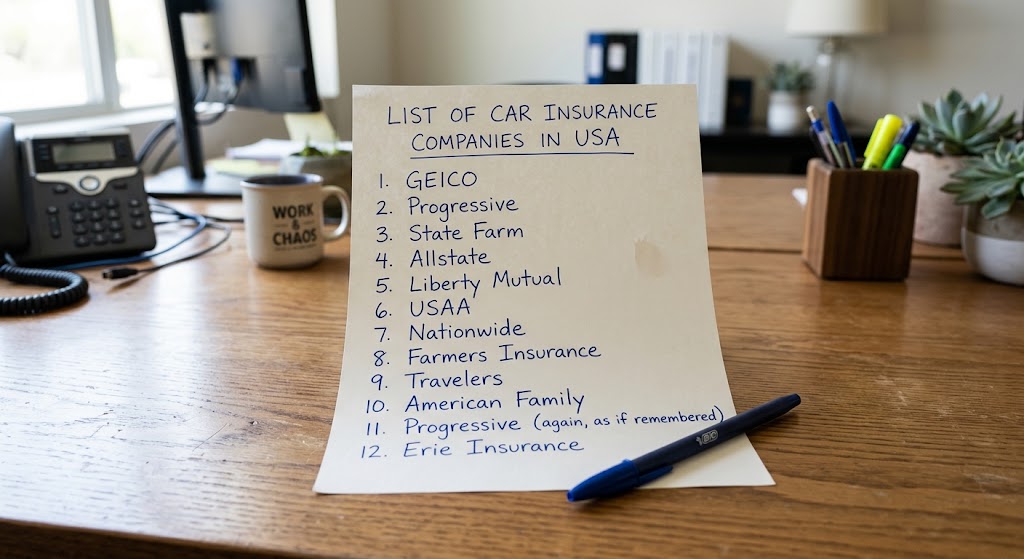 LIST OF CAR INSURANCE
COMPANIES IN USA
1. GEICO
2. Progressive
3. State Farm
4. Allstate
5. Liberty Mutual
6. USAA
7. Nationwide
8. Farmers Insurance
9. Travelers
10. American Family
11. Progressive (again, as if remembered)
12. Erie Insurance
WORK
&
CHAOS
BIC